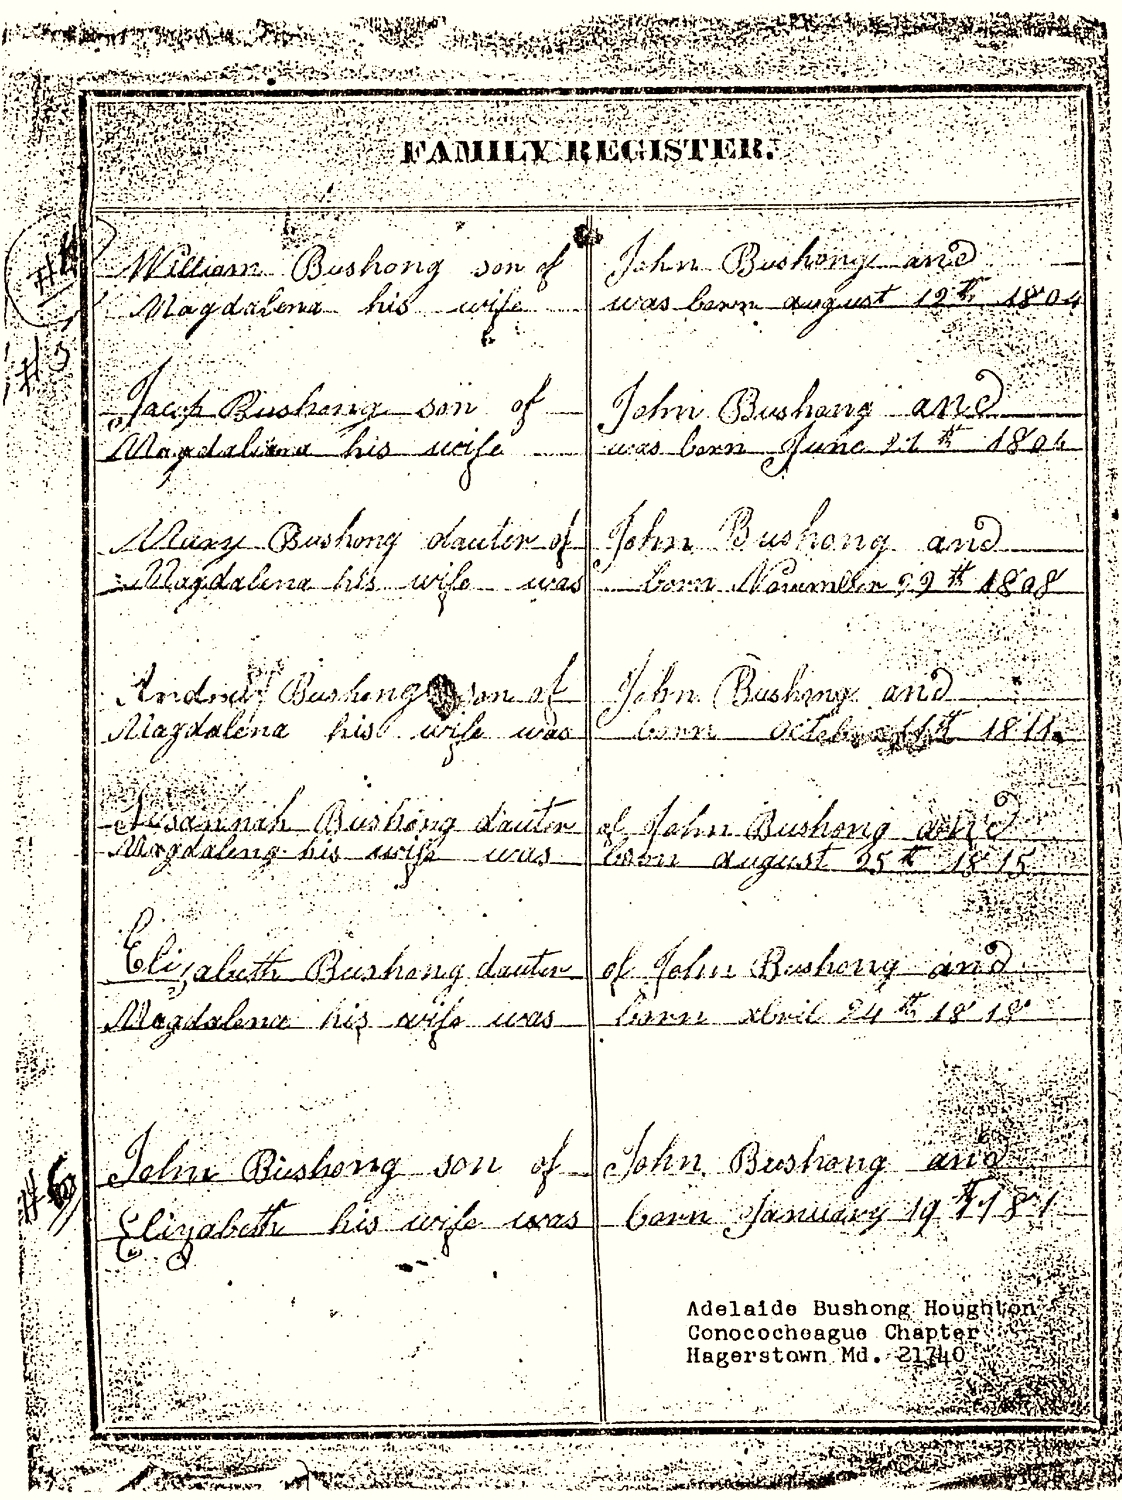 FAMILY REGISTER.
William Bushong son of John Bushong and
Magdalena his wife was born august 12th 1804
Jacob Bushong son of John Bushong and
Magdalena his wife was born June 21th 1806
Mary Bushong dauter of John Bushong and
Magdalena his wife was born November 29th 1808
Andrew Bushong son of John Bushong and
Magdalena his wife was born October 11th 1811
Susannah Bushong dauter of John Bushong and
Magdalena his wife was born august 25th 1815
Elizabeth Bushong dauter of John Bushong and
Magdalena his wife was born abril 24th 1818
#6
John Bushong son of John Bushong and
Elizabeth his wife was born January 19th
Adelaide Bushong Houghton
Conococheague Chapter
Hagerstown Md. 21740